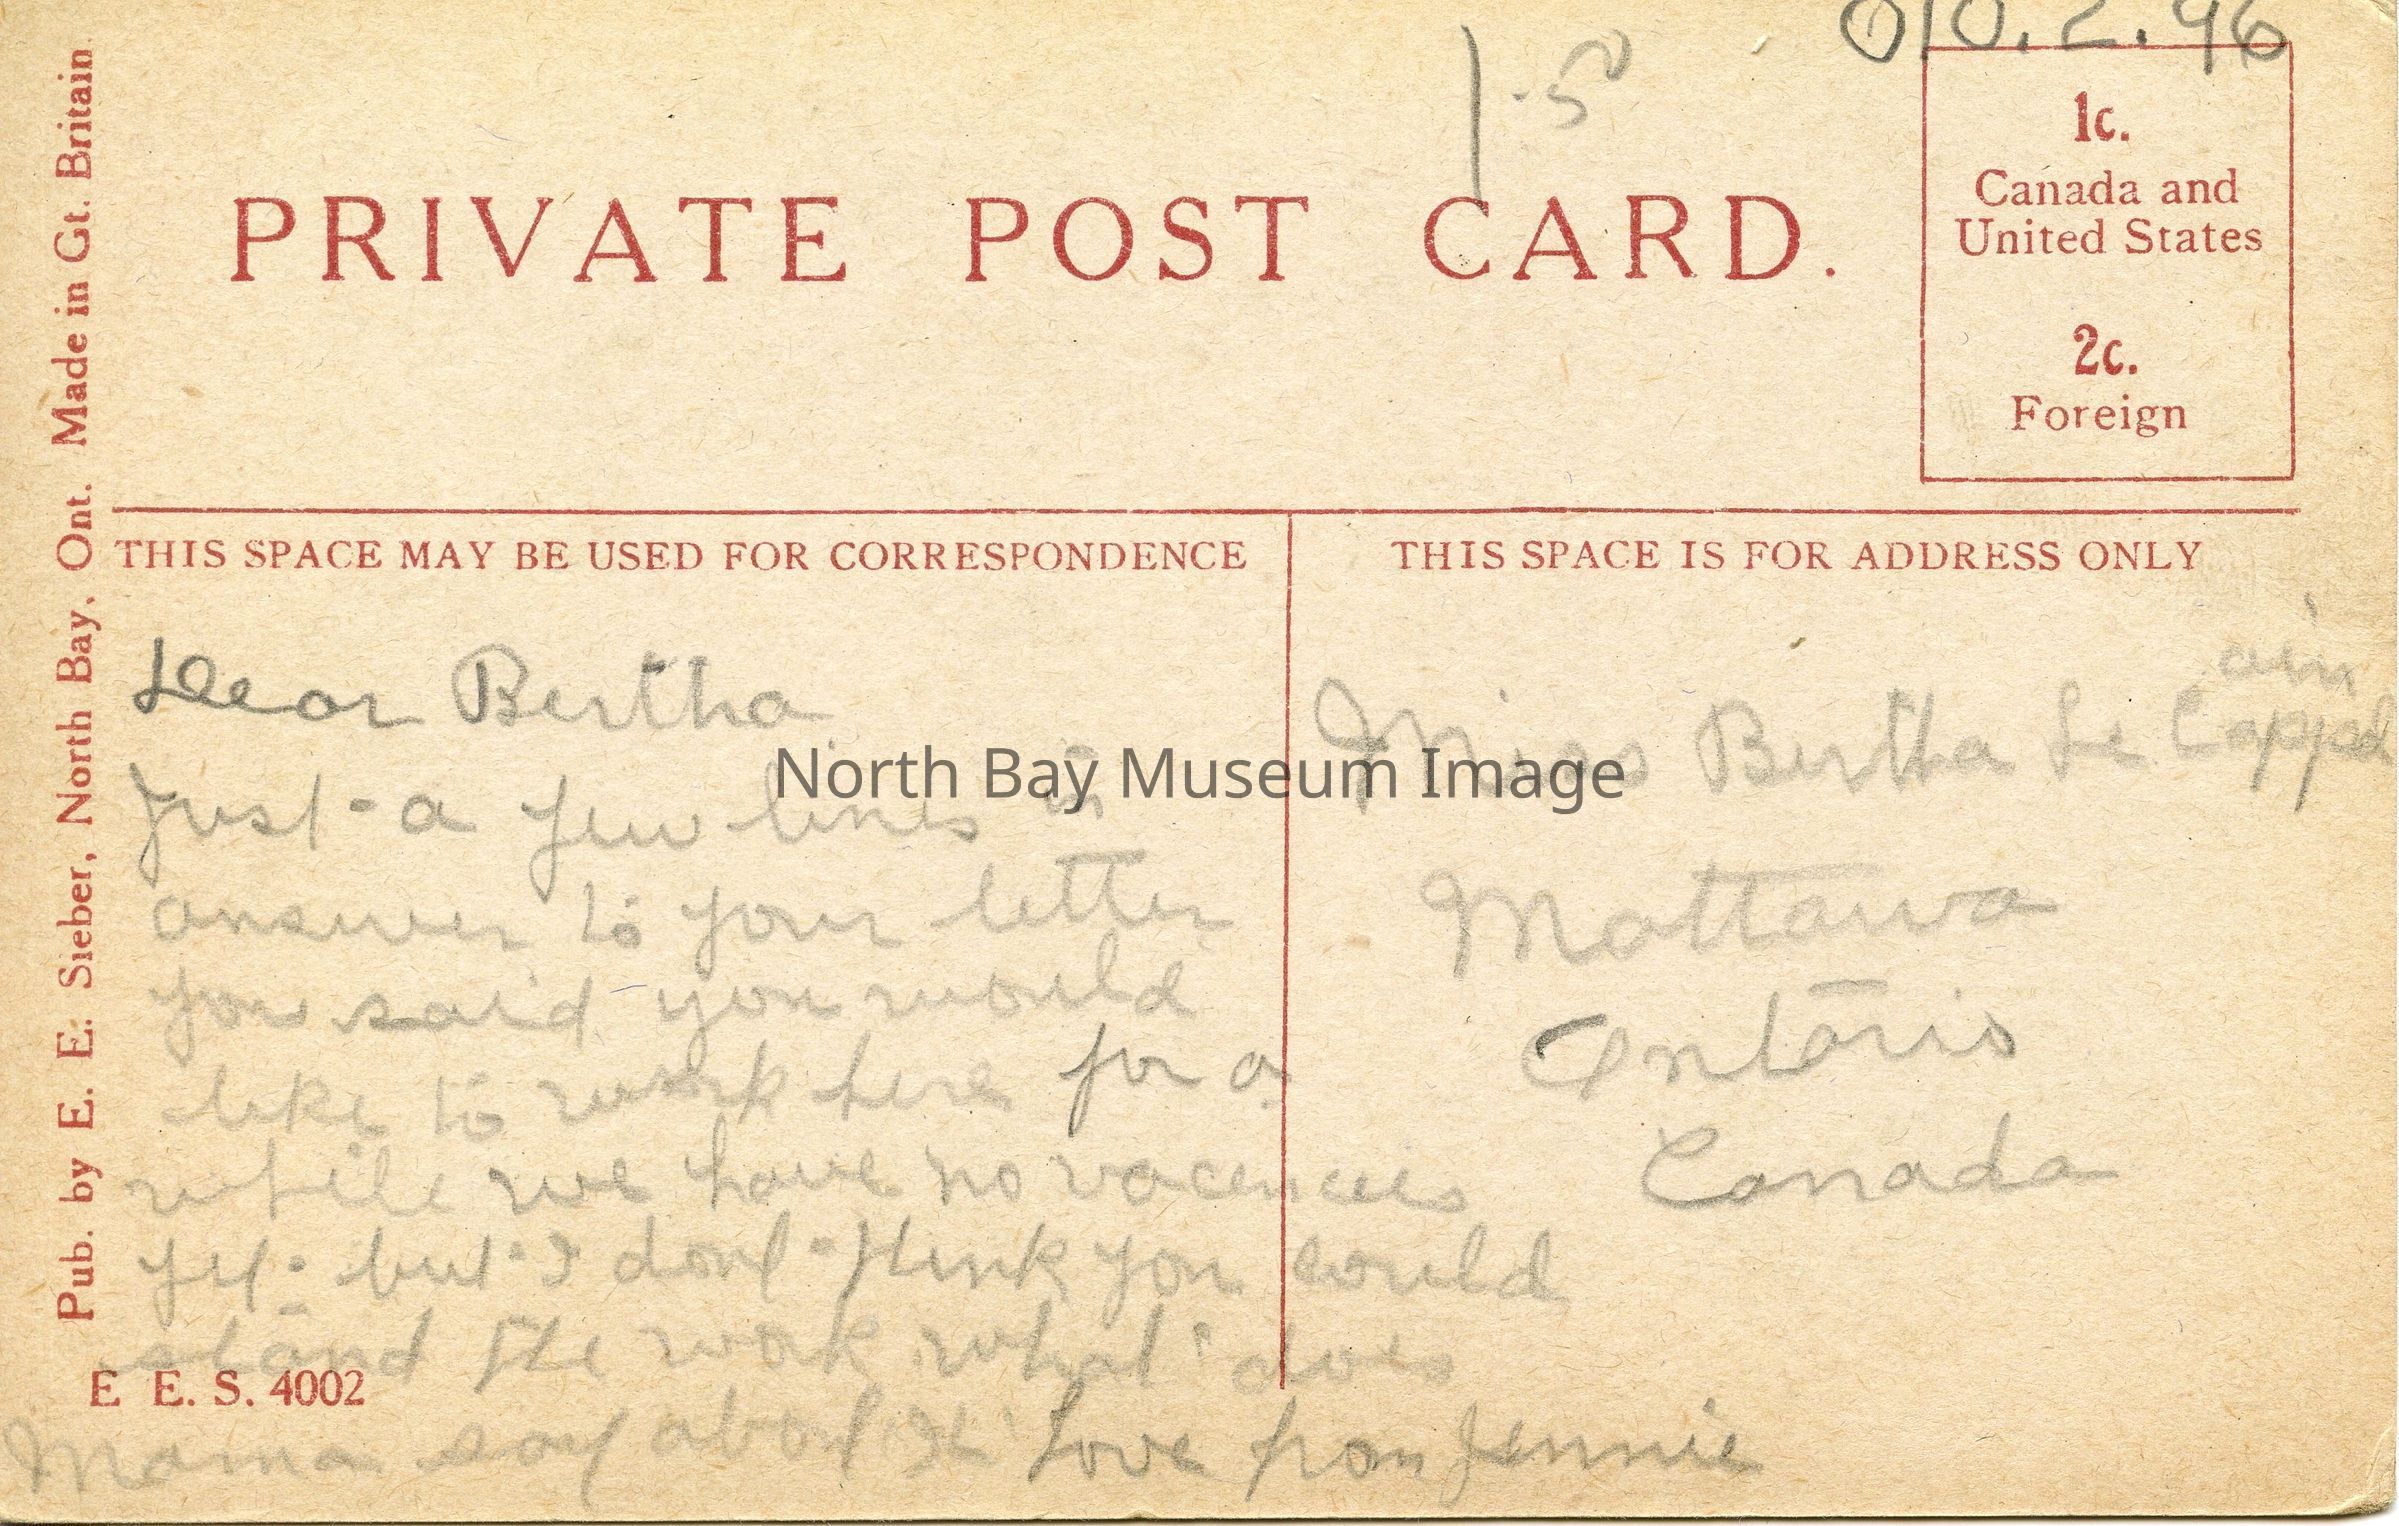 010.2.96
1.50
PRIVATE POST CARD.
1c.
Canada and
United States
2c.
Foreign
Pub. by E. E. Sieber, North Bay, Ont. Made in Gt. Britain
THIS SPACE MAY BE USED FOR CORRESPONDENCE
Dear Bertha
Just a few lines in
answer to your letter
you said you would
like to work here for a
while we have no vacencies
yet but I dont think you could
stand the work what does
Mama say about it Love from Jennie
E E. S. 4002
THIS SPACE IS FOR ADDRESS ONLY
Miss Bertha Le
Mattawa
Ontario
Canada
North Bay Museum Image